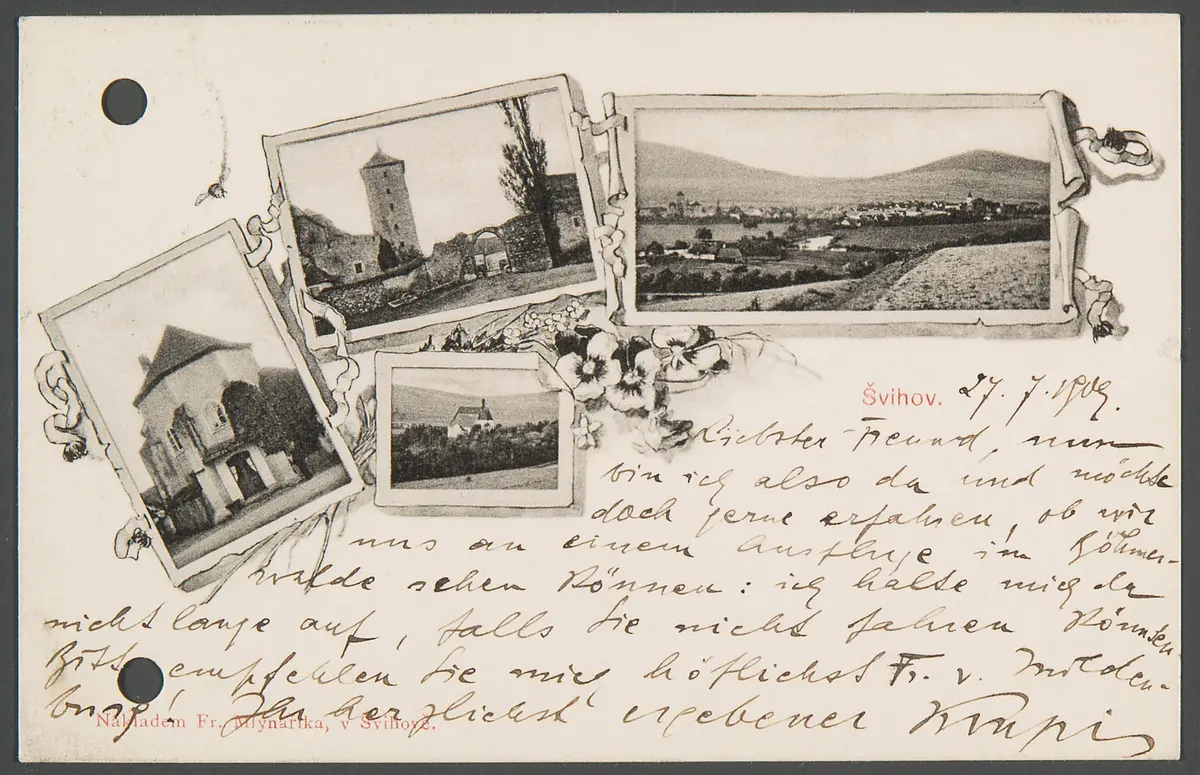 Švihov. 27. 7. 1909.
Liebster Freund, nun
bin ich also da und möchte
doch gerne erfahren, ob wir
uns an einem Ausfluge im Böhmer-
walde sehen können: ich halte mich da
nicht lange auf, falls Sie nicht fahren könnten.
Bitte empfehlen Sie mich höflichst Fr. v. Milden-
burg! Ihr herzlichst ergebener
Nákladem Fr. Mlynaříka, v Švihově.